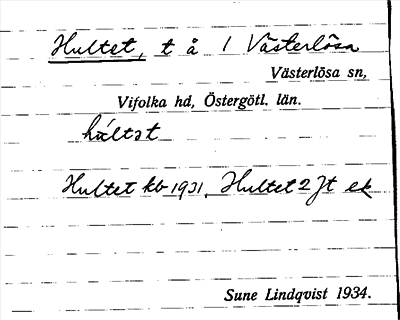 Hultet, t å 1 Västerlösa
Västerlösa sn,
Vifolka hd, Östergötl. län.
húltət
Hultet kb 1931, Hultet 2 Jt ek
Sune Lindqvist 1934.